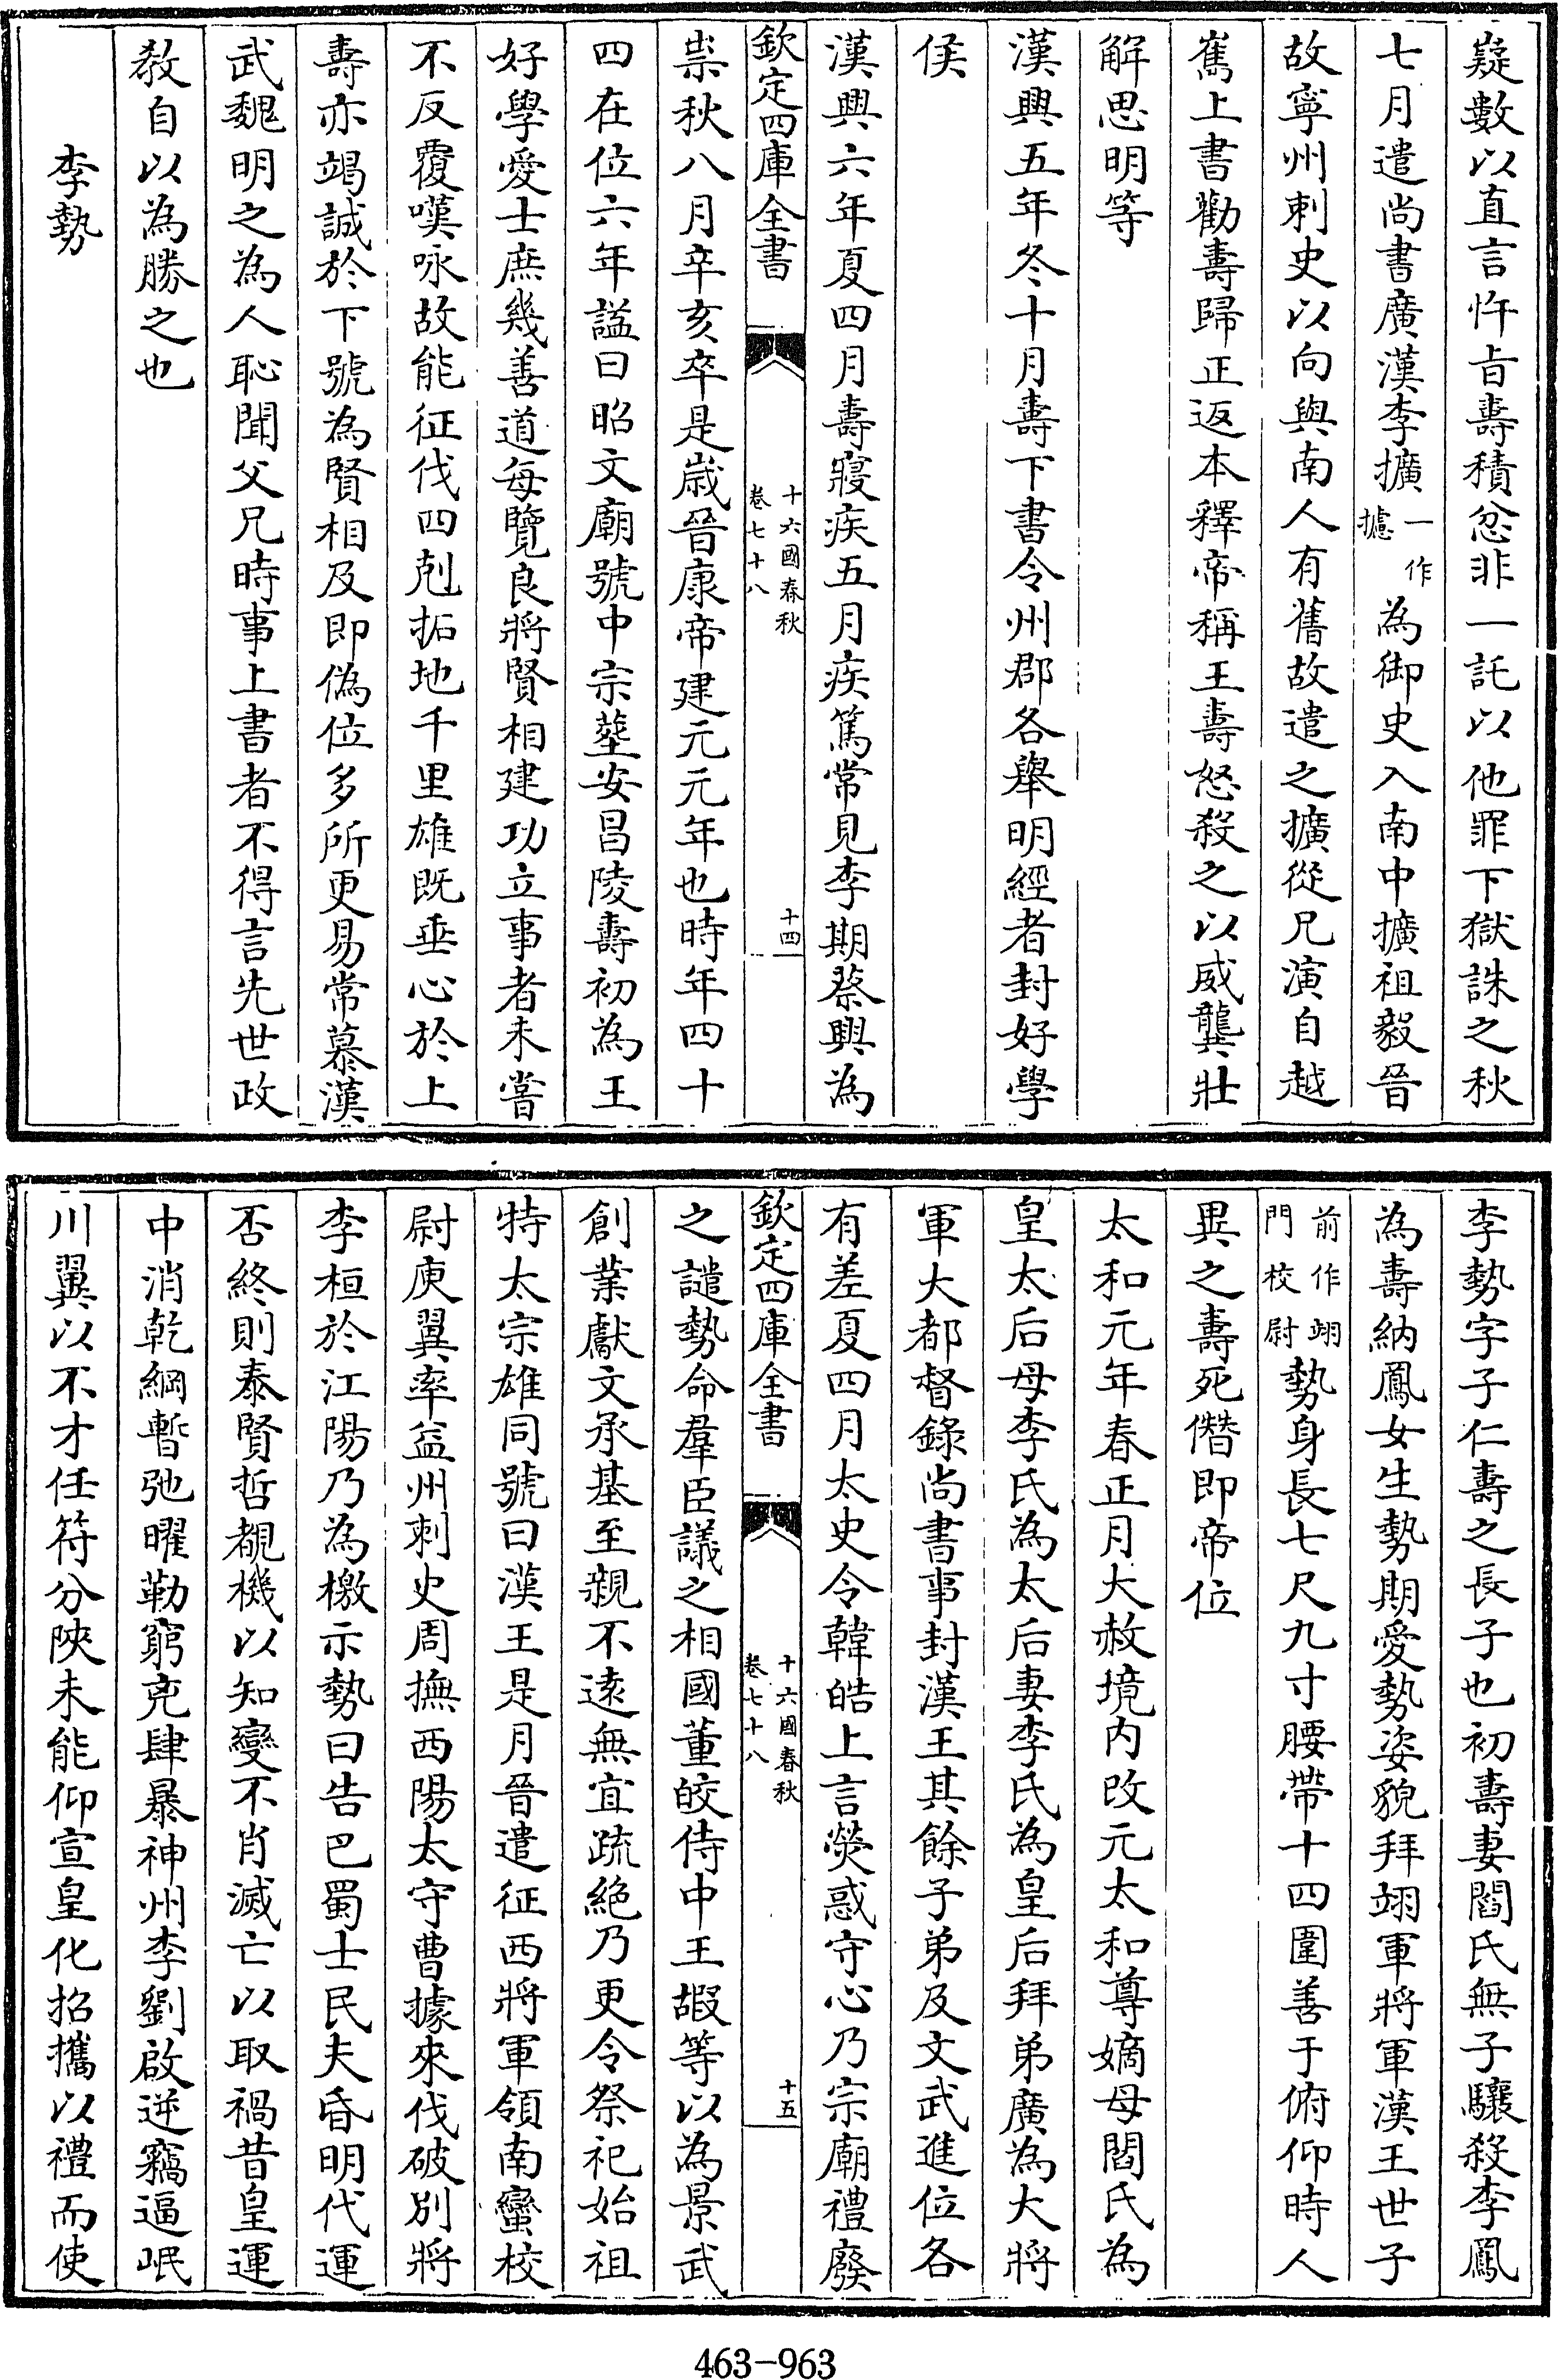 嶷數以直言忤旨壽積忿非一託以他罪下獄誅之秋
七月遣尚書廣漢李擴一作攄為御史入南中擴祖毅晉
故寧州刺史以向與南人有舊故遣之擴從兄演自越
嶲上書勸壽歸正返本釋帝稱王壽怒殺之以威龔壯
解思明等
漢興五年冬十月壽下書令州郡各舉明經者封好學
侯
漢興六年夏四月壽寢疾五月疾篤常見李期蔡興為
欽定四庫全書
十六國春秋
卷七十八
十四
祟秋八月卒亥卒是歲晉康帝建元元年也時年四十
四在位六年諡曰昭文廟號中宗葬安昌陵壽初為王
好學愛士庶幾善道每覽良將賢相建功立事者未嘗
不反覆嘆咏故能征伐四剋拓地千里雄既垂心於上
壽亦竭誠於下號為賢相及即偽位多所更易常慕漢
武魏明之為人恥聞父兄時事上書者不得言先世政
敎自以為勝之也
李勢
李勢字子仁壽之長子也初壽妻閻氏無子驤殺李鳳
為壽納鳳女生勢期愛勢姿貌拜翊軍將軍漢王世子
前作翊門校尉勢身長七尺九寸腰帶十四圍善于俯仰時人
異之壽死僭即帝位
太和元年春正月大赦境內改元太和尊嫡母閻氏為
皇太后母李氏為太后妻李氏為皇后拜弟廣為大將
軍大都督錄尚書事封漢王其餘子弟及文武進位各
有差夏四月太史令韓皓上言熒惑守心乃宗廟禮廢
欽定四庫全書
十六國春秋
卷七十八
十五
之譴勢命羣臣議之相國董皎侍中王嘏等以為景武
創業獻文承基至親不遠無宜疏絶乃更令祭祀始祖
特太宗雄同號曰漢王是月晉遣征西將軍領南蠻校
尉庾翼率益州刺史周撫西陽太守曹據來伐破別將
李桓於江陽乃為檄示勢曰告巴蜀士民夫昏明代運
否終則泰賢哲覩機以知變不肖滅亡以取禍昔皇運
中消乾綱暫弛曜勒窮兇肆暴神州李劉啟逆竊逼岷
川翼以不才任符分陝未能仰宣皇化招攜以禮而使
463-963